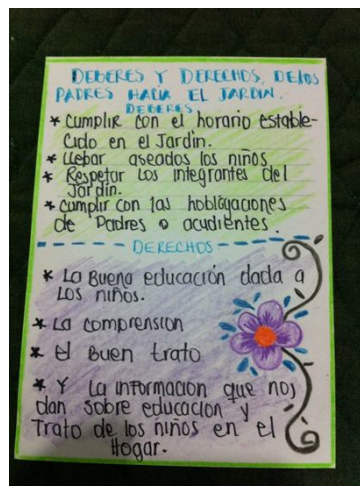 DEBERES Y DERECHOS, DELOS
PADRES HACIA EL JARDIN.
DEBERES.
* Cumplir con el horario estable-
Cido en el Jardín.
* Llebar aseados los niños
* Respetar Los integrantes del
Jardín.
* cumplir con las hobligaciones
de Padres o acudientes.
DERECHOS
* La Buena educación dada a
Los niños.
* La comprension
* El Buen trato
* Y La informacion que nos
dan sobre educación y
Trato de los niños en el
Hogar.